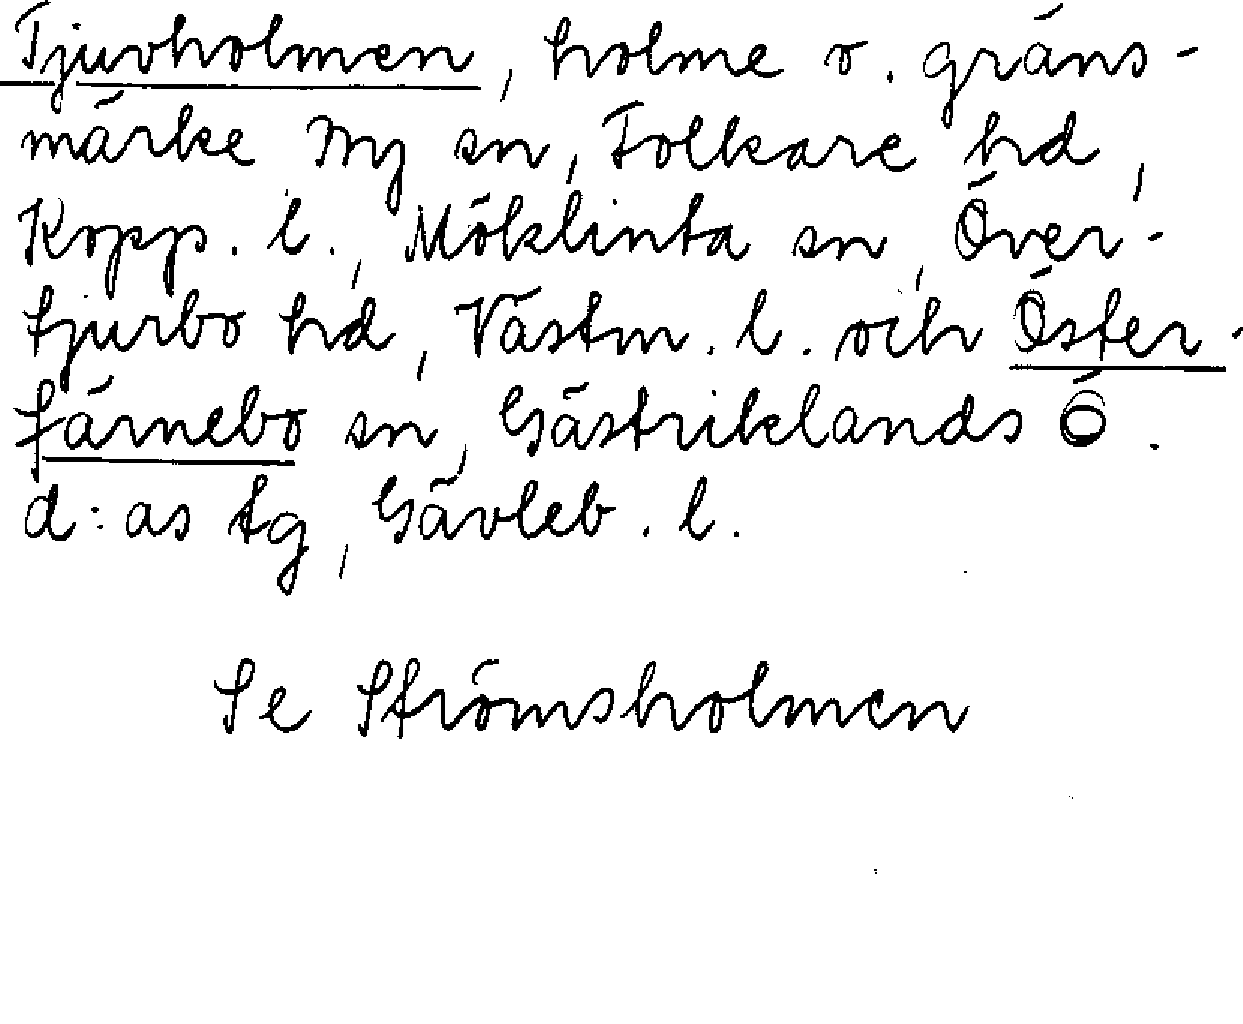 Tjuvholmen, holme o. gräns-
märke By sn, Folkare hd,
Kopp. l., Möklinta sn, Över-
tjurbo hd, Västm. l. och Öster-
färnebo sn, Gästriklands Ö.
d:as tg, Gävleb. l.
Se Strömsholmen